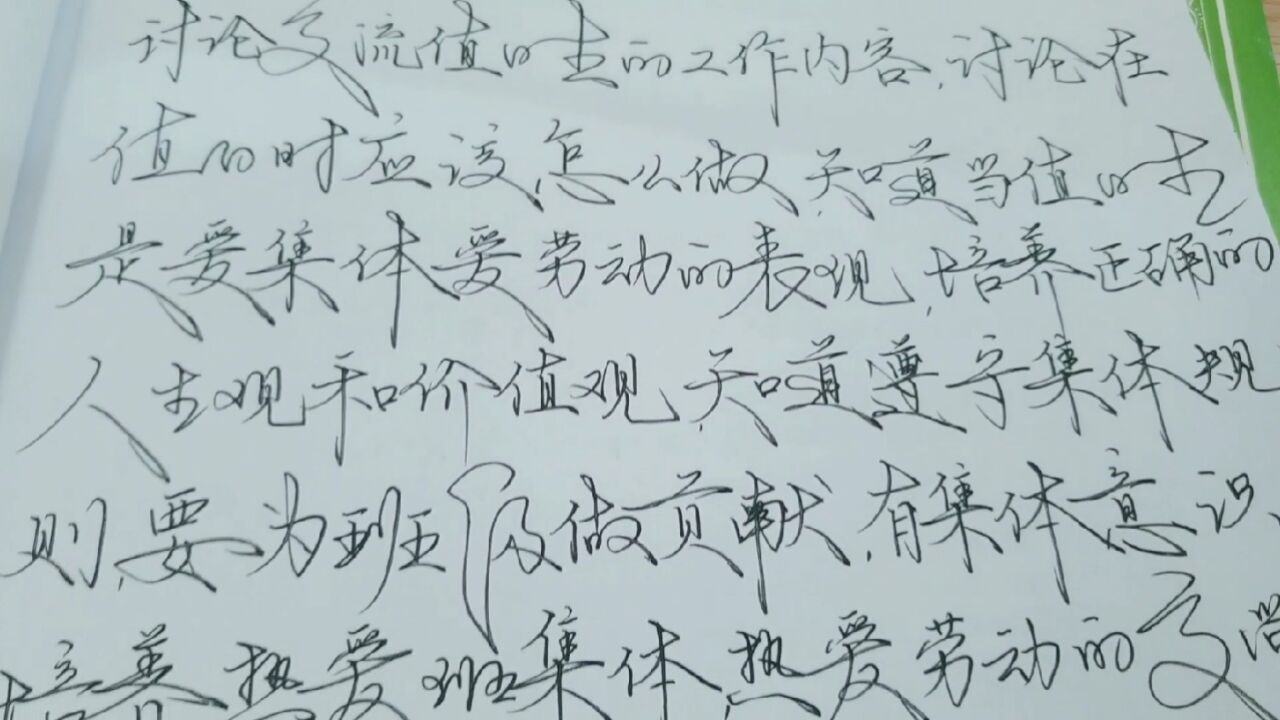 讨论交流值日生的工作内容,讨论在
值日时应该怎么做,知道当值日生
是爱集体爱劳动的表现,培养正确的
人生观和价值观,知道遵守集体规
则,要为班级做贡献,有集体意识、
培养热爱班集体,热爱劳动的